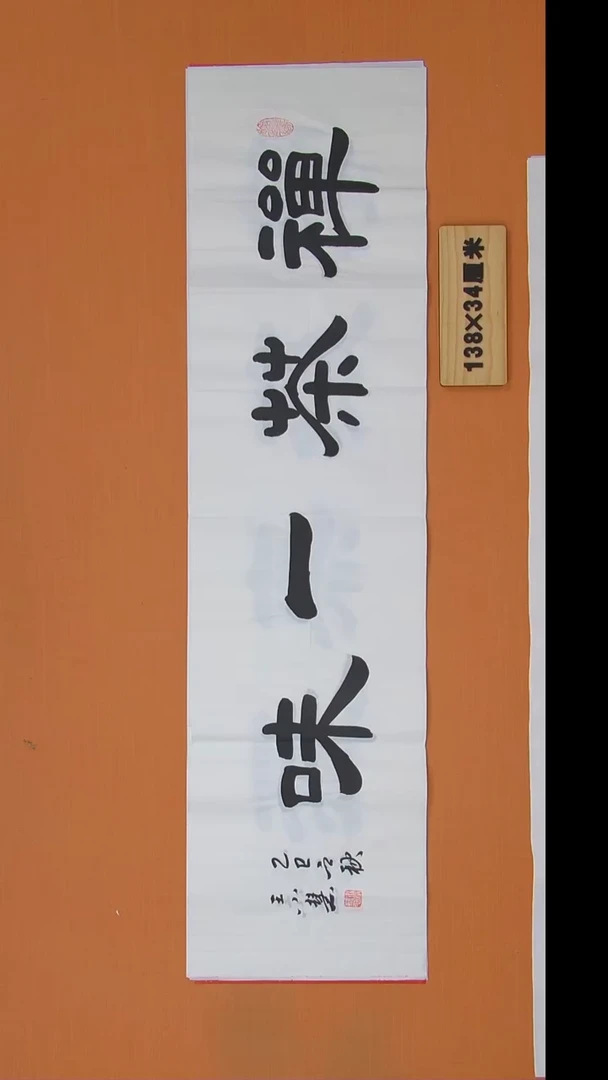 禪茶一味
乙巳之秋
王小慧
138×34厘米